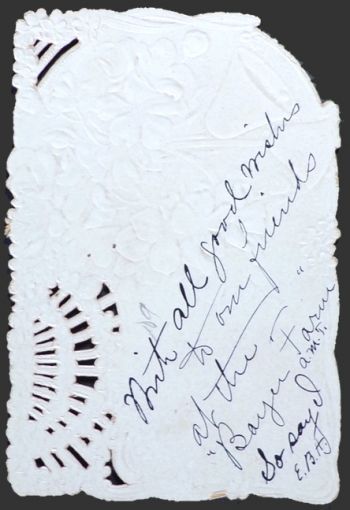 With all good wishes
to our friends
at the
"Bayer Farm"
a.m.T.
So say I
E.B.T.